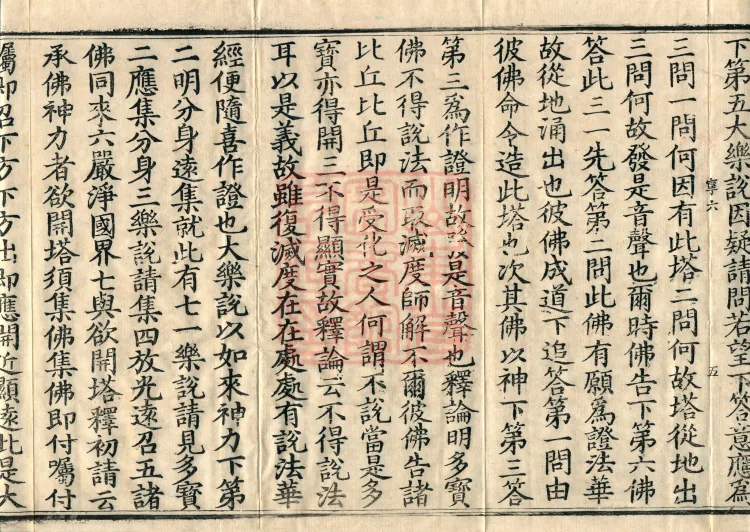 下第五大樂說因疑請問若望下答意應爲
三問一問何因有此塔二問何故塔從地出
三問何故發是音聲也爾時佛告下第六佛
答此三一先答第二問此佛有願爲證法華
故從地涌出也彼佛成道下追答第一問由
彼佛命令造此塔也次其佛以神下第三答
寧六
五
第三爲作證明故發是音聲也釋論明多寶
佛不得說法而取滅度師解不爾彼佛告諸
比丘比丘即是受化之人何謂不說當是多
寶亦得開三不得顯實故釋論云不得說法
耳以是義故雖復滅度在在處處有說法華
經便隨喜作證也大樂說以如來神力下第
二明分身遠集就此有七一樂說請見多寶
二應集分身三樂說請集四放光遠召五諸
佛同來六嚴淨國界七與欲開塔釋初請云
承佛神力者欲開塔須集佛集佛即付囑付
囑即召下方下方出即應開近顯遠此是大